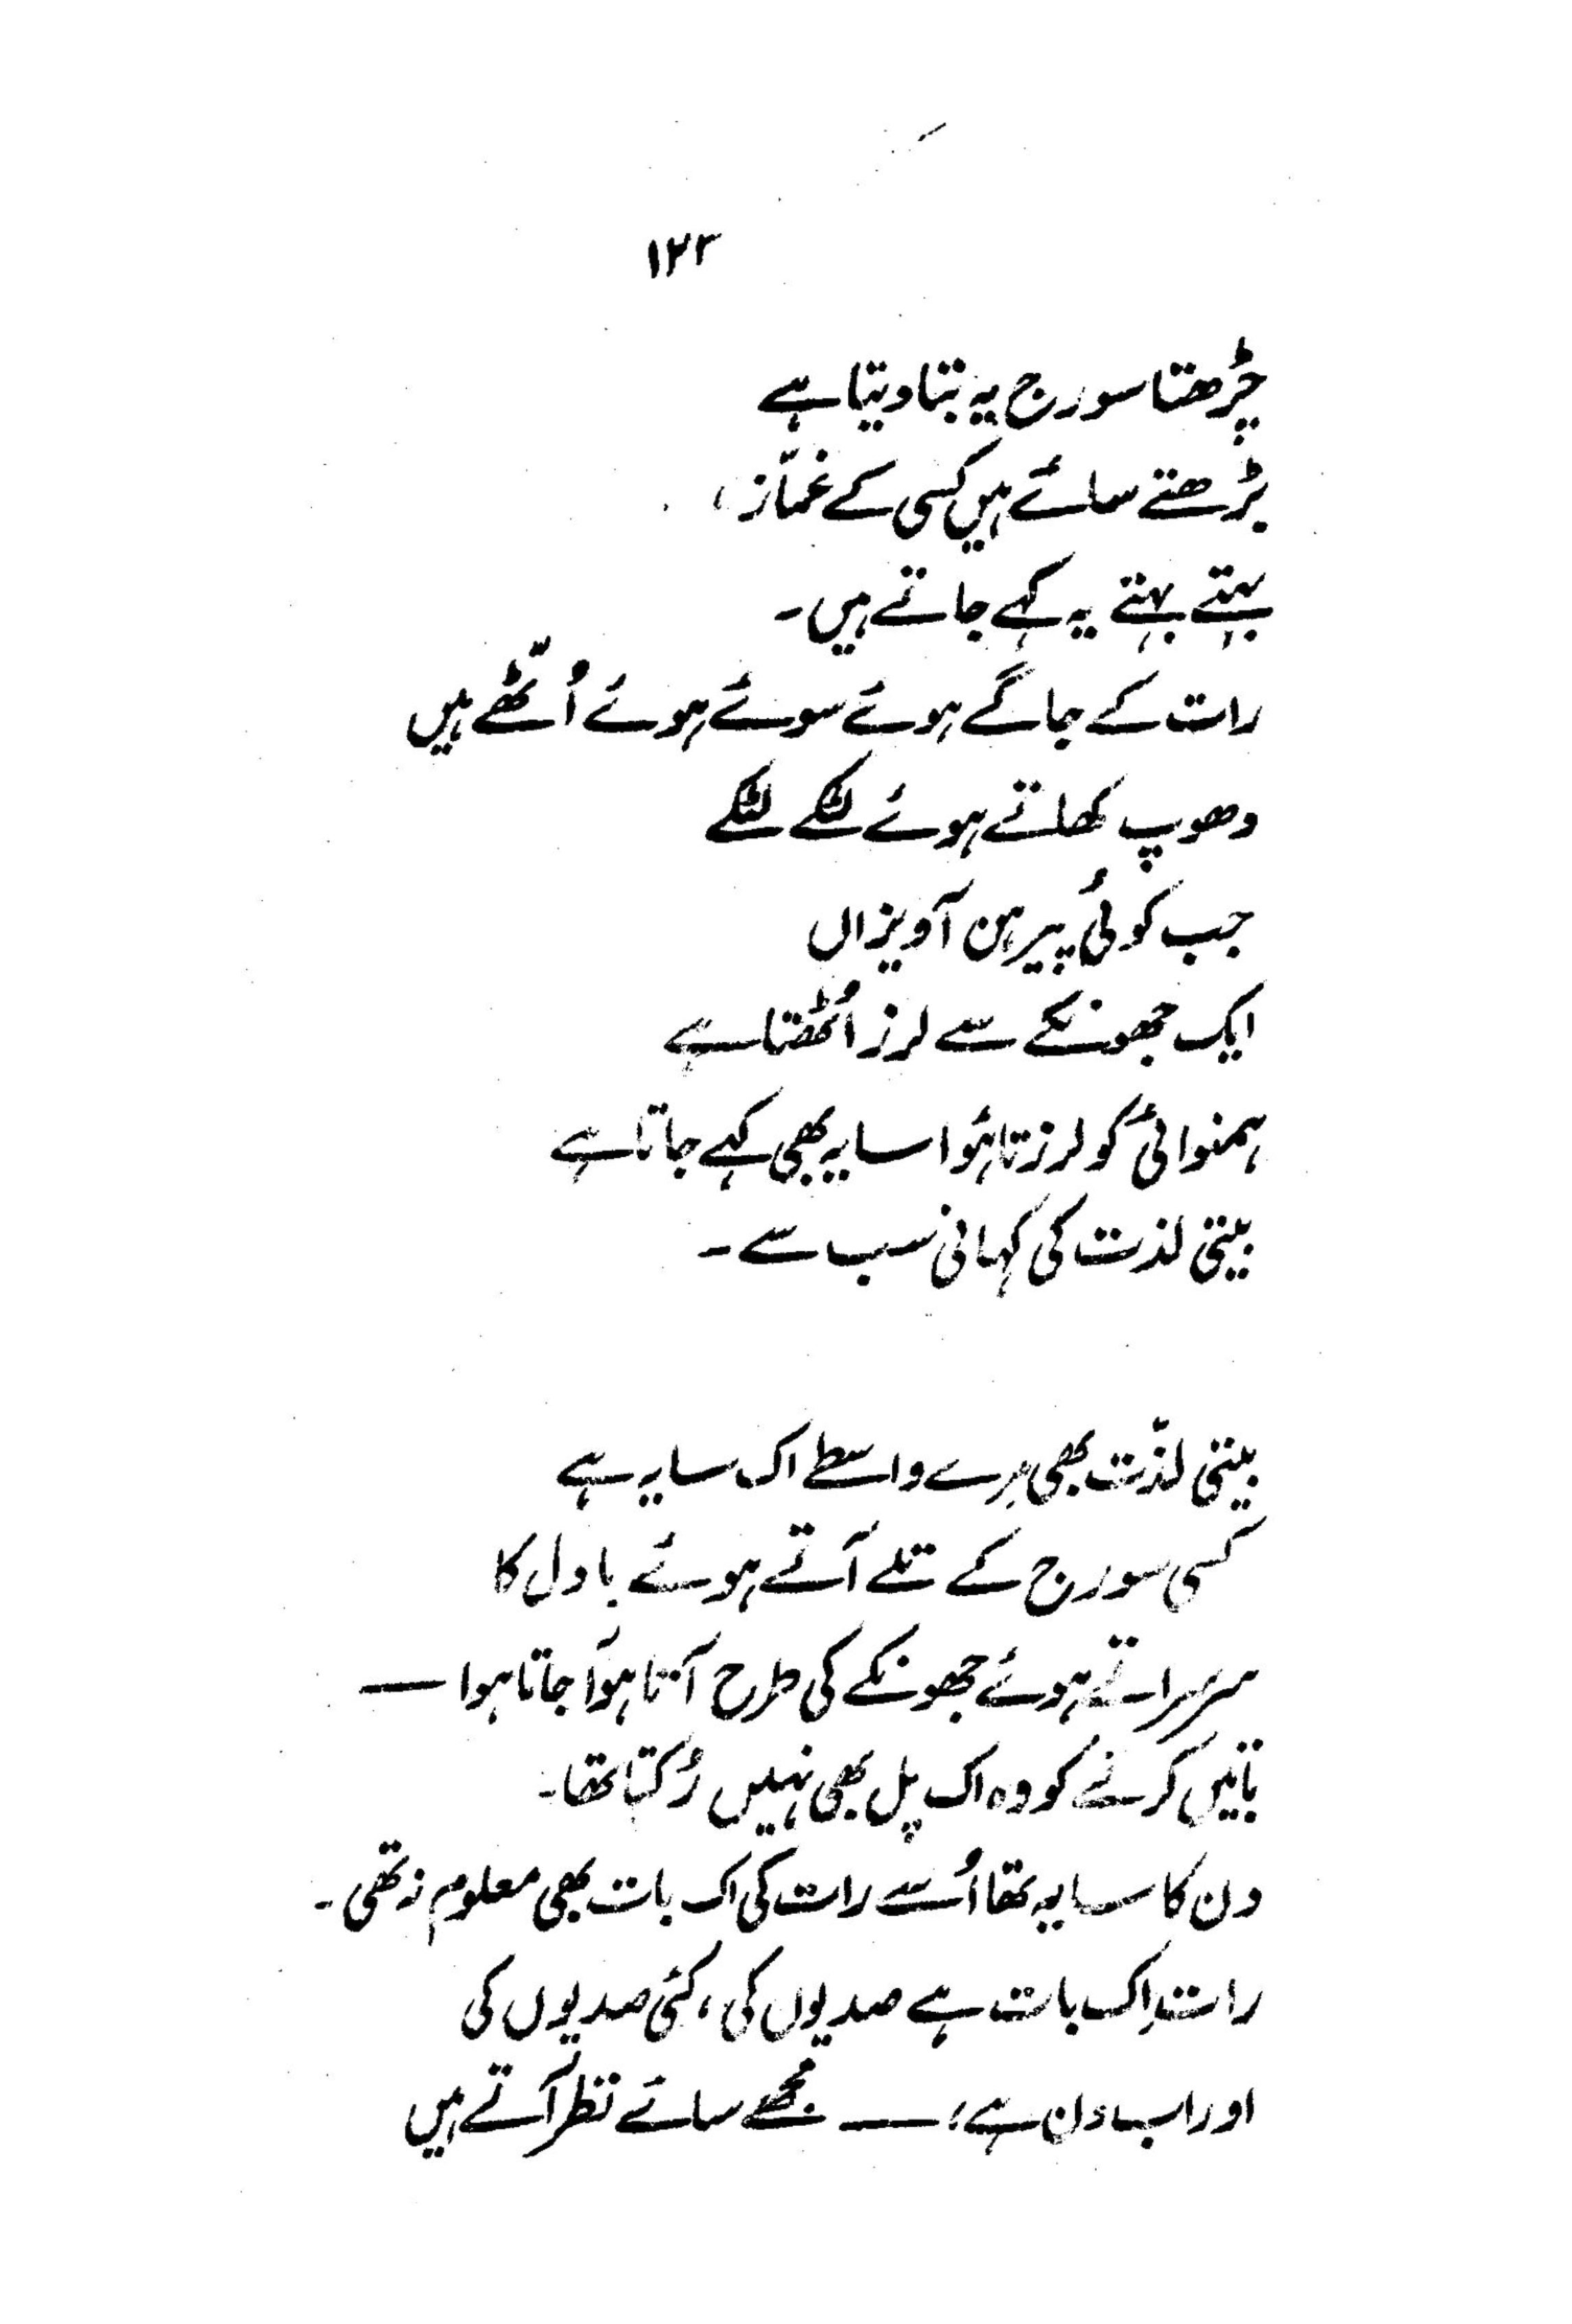 ۱۲۲
چڑھتا سورج یہ بتا دیتا ہے
بڑھتے سائے ہیں کسی کے غمّاز،
بہتے بہتے یہ کہے جاتے ہیں۔
رات کے جاگے ہوئے سوئے ہوئے اُٹّھے ہیں
دھوپ کھاتے ہوئے لٹکے لٹکے
جب کوئی پیرہن آویزاں
ایک جھونکے سے لرز اُٹھتا ہے
ہمنوائی کو لرزتا ہُوا سایہ بھی کہے جاتا ہے
بیتی لذت کی کہانی سب سے۔
بیتی لذّت بھی مِرے واسطے اک سایہ ہے
کسی سورج کے تلے آتے ہوئے بادل کا
سرسراتے ہوئے جھونکے کی طرح آتا ہُوا جاتا ہوا —
باتیں کرنے کو وہ اک پل بھی نہیں رُکتا تھا۔
دن کا سایہ تھا اُسے رات کی اک بات بھی معلوم نہ تھی۔
رات اِک بات ہے صدیوں کی، کئی صدیوں کی
اور اب دن ہے، — مجھے سائے نظر آتے ہیں